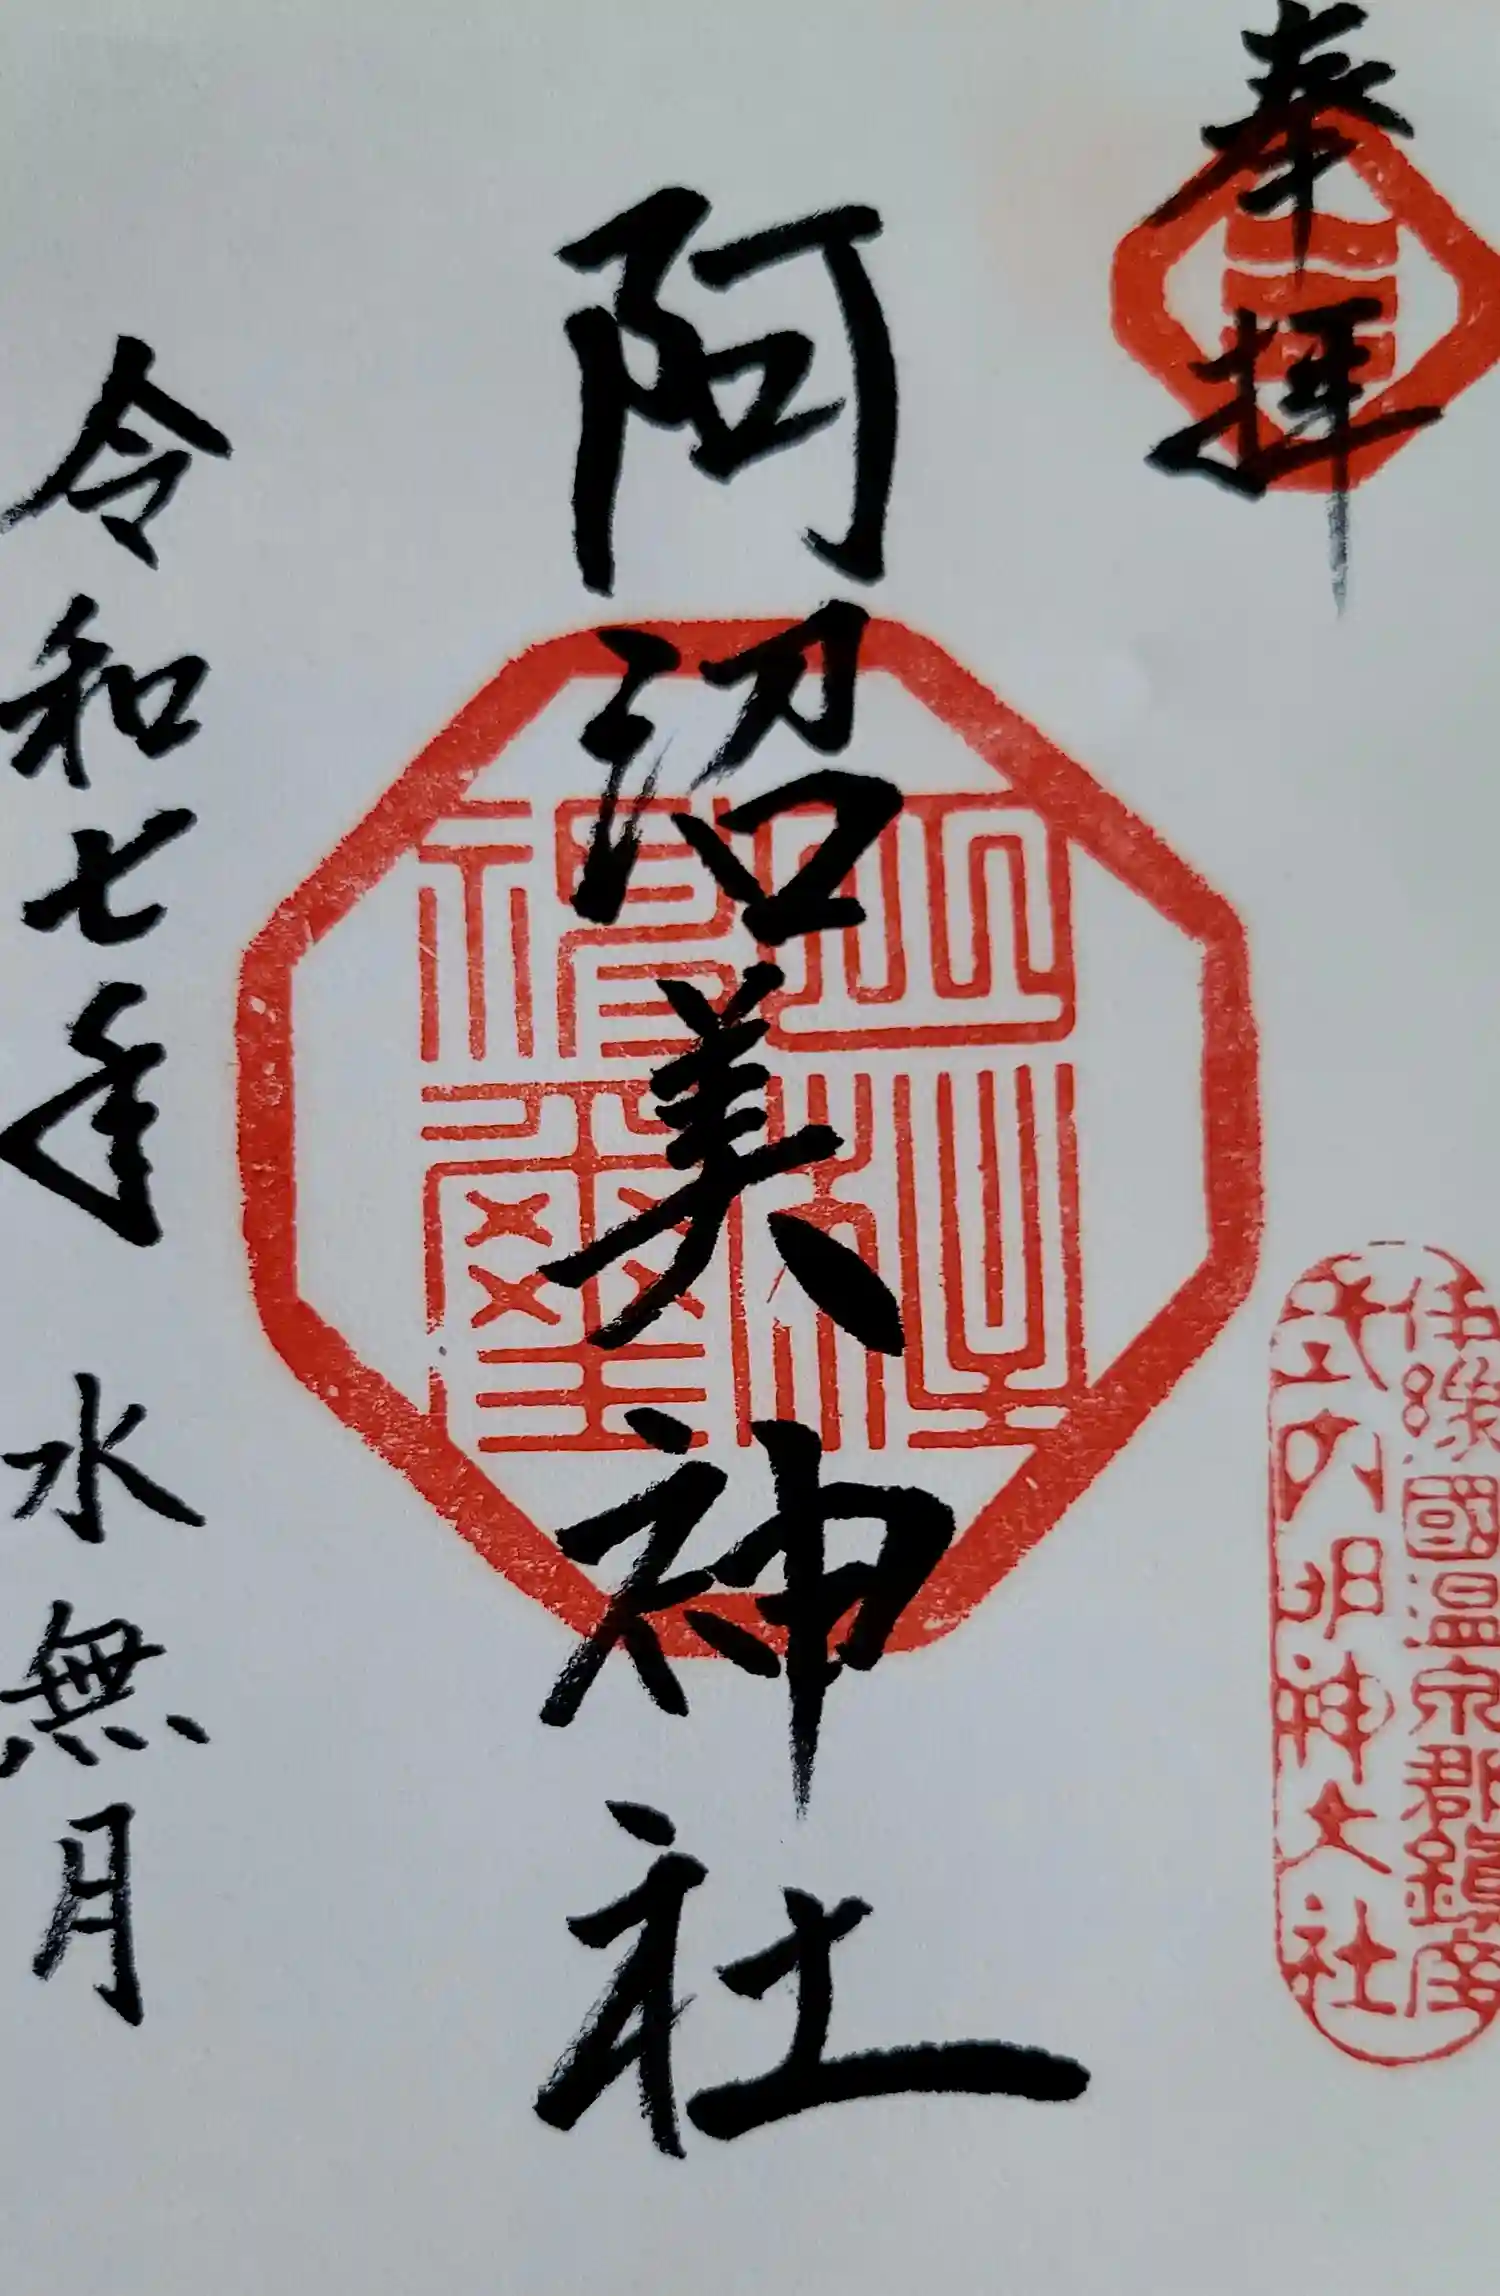 奉拝
伊豫國温泉郡鎮座
式内明神大社
阿沼美神社
令和七年 水無月